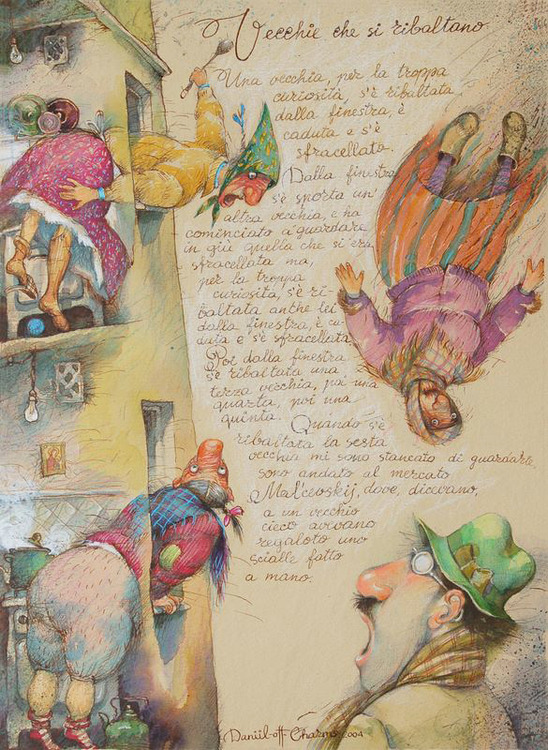 Vecchie che si ribaltano
Una vecchia, per la troppa
curiosità, s'è ribaltata
dalla finestra, è
caduta e s'è
sfracellata.
Dalla finestra
s'è sporta un'
altra vecchia, e ha
cominciato a guardare
in giù quella che si era
sfracellata ma,
per la troppa
curiosità, s'è ri-
baltata anche lei
dalla finestra, è ca-
duta e s'è sfracellata.
Poi dalla finestra
s'è ribaltata una
terza vecchia, poi una
quarta, poi una
quinta.
Quando s'è
ribaltata la sesta
vecchia mi sono stancato di guardarle
sono andato al mercato
Mal'cevskij, dove, dicevano,
a un vecchio
cieco avevano
regalato uno
scialle fatto
a mano.
Daniil-off-Charms 2004